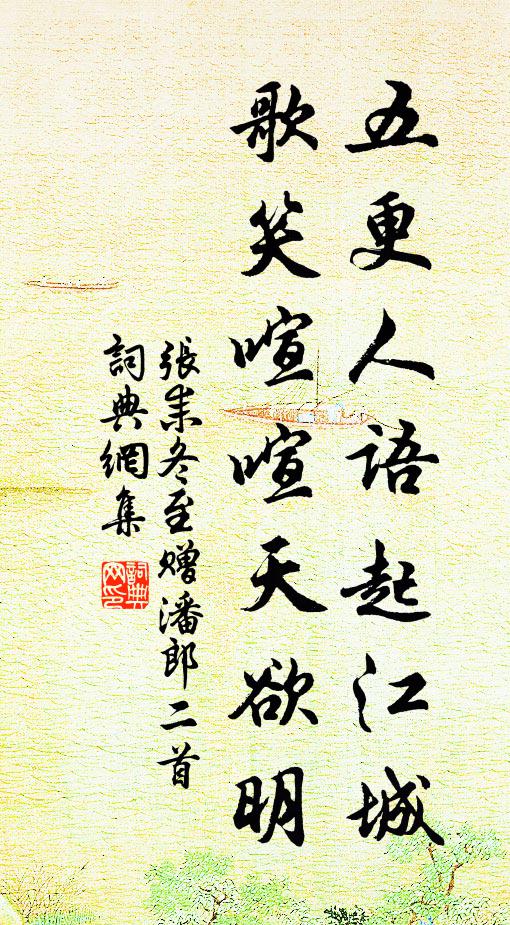 五更人語起江城
歌笑喧喧天欲明
張耒冬至贈潘郎二首
詞典網集
詞典
网印